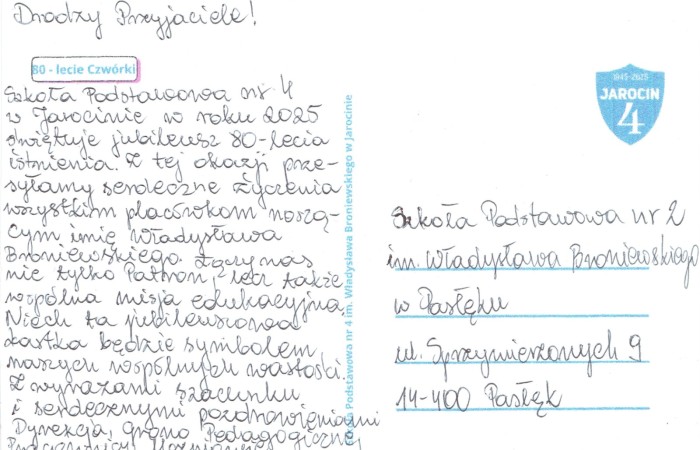 Drodzy Przyjaciele!
80 - lecie Czwórki
Szkoła Podstawowa nr 4
w Jarocinie w roku 2025
świętuje jubileusz 80-lecia
istnienia. Z tej okazji prze-
syłamy serdeczne życzenia
wszystkim placówkom noszą-
cym imię Władysława
Broniewskiego. Łączy nas
nie tylko Patron, lecz także
wspólna misja edukacyjna.
Niech ta jubileuszowa
kartka będzie symbolem
naszych wspólnych wartości.
Z wyrazami szacunku
i serdecznymi pozdrowieniami
Dyrekcja, Grono Pedagogiczne,
Pracownicy
Szkoła Podstawowa nr 4 im. Władysława Broniewskiego w Jarocinie
1945-2025
JAROCIN
4
Szkoła Podstawowa nr 2
im. Władysława Broniewskiego
w Pasłęku
ul. Sprzymierzonych 9
14-400 Pasłęk